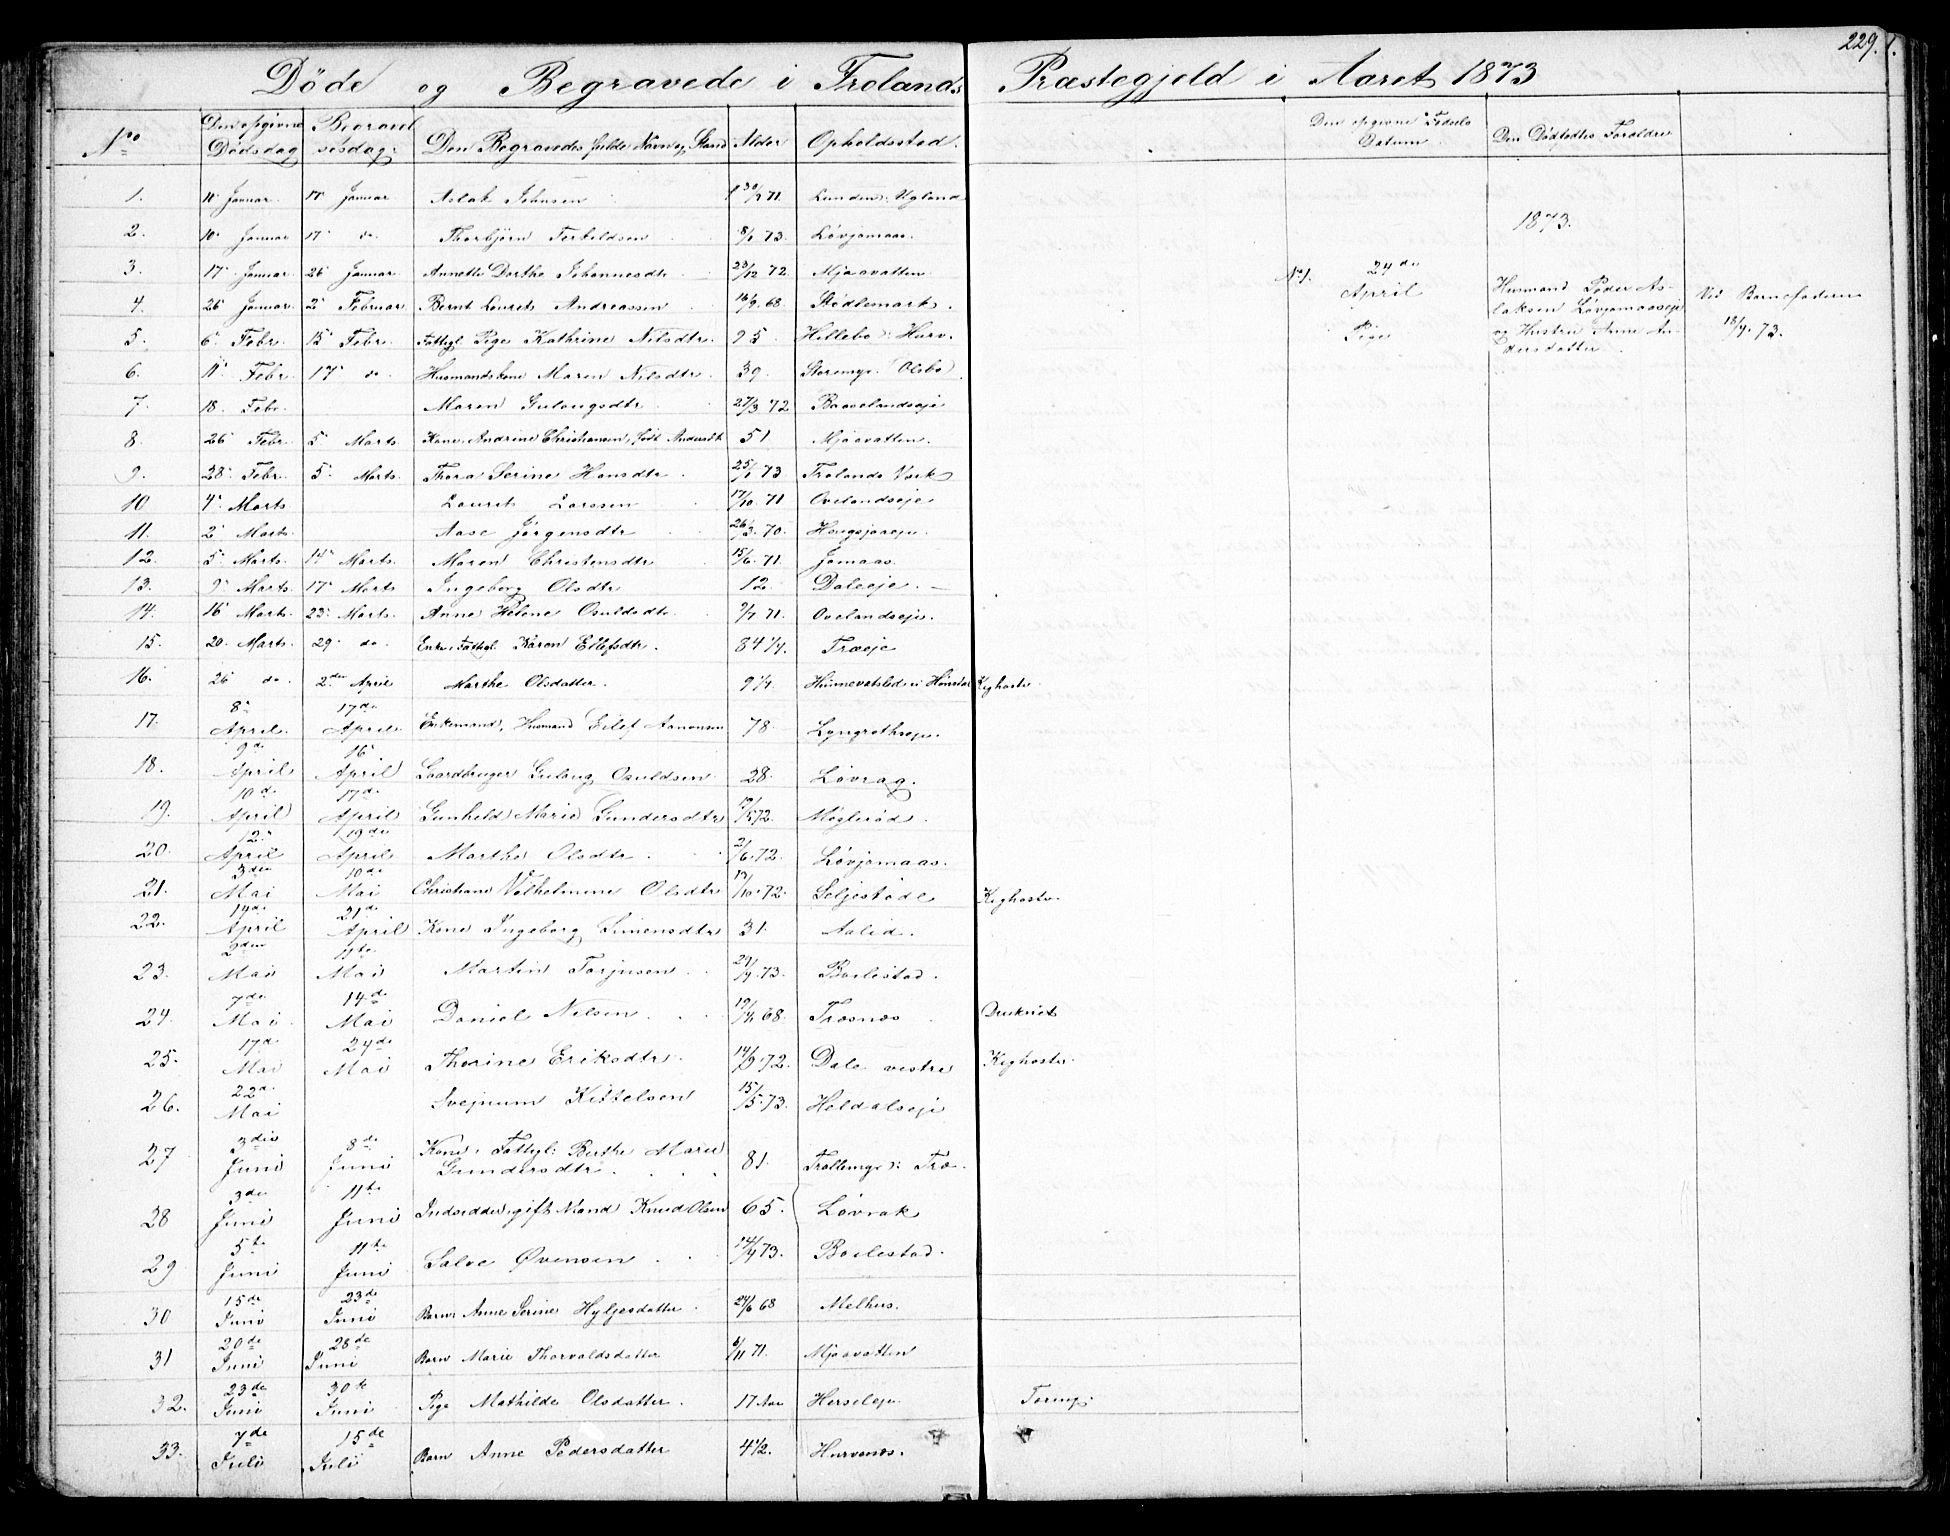 229.
Døde og Begravede i Frolands Præstegjeld i Aaret 1873
No Den opgivne Dødsdag Begravelsesdag. Den Begravedes fulde Navn og Stand Alder Opholdssted. Den opgivne Fødsels Datum Den Dødfødtes Forældre
1. 11 Januar 17 Januar Aslak Johnsen 71. Lunden i Ugland
2. 10 Januar 17 do Thorbjørn Terkildsen 8/1 73. Løvjomaas.
3. 17 Januar 26 Januar Annette Dorthe Johannesdtr 23/12 72 Mjaavatten
4. 26 Januar 2 Februar Bernt Lourits Andreassen 16/9 68. Stødlemark.
5. 6 Febr. 15 Febr. Fattigl. Pige Kathrine Nilsdtr. 95 Hillebo i Hurv.
6. 11 Febr. 17 do Husmandskone Maren Nilsdtr. 39. Storemyr (Olsbo)
7. 18. Febr. Maren Gulougsdtr. 27/3 72 Baavelandseje
8. 26 Febr. 5 Marts. Kone Andrine Christiansen, født Andersdtr 51 Mjaavatten.
9. 28 Febr. 5 Marts. Thora Serine Hansdtr. 25/1 73. Frolands Værk
10 4 Marts Lourits Larssen 17/10 71 Ovelandseje
11. 2 Marts. Aase Jørgensdtr 26/3 70.
12. 5 Marts. 14 Marts. Maren Christensdtr 15/6 71. Jomaas.
13. 9 Marts. 17 Marts Ingeborg Olsdtr 12. Daleeje.
14. 16 Marts. 23 Marts. Anne Helene Osuldsdtr. 71. Ovelandseje.
15. 20. Marts. 29 do Enke Fattigl. Karen Ellefsdtr. 84 1/4. Træeje
16. 26 do. 2den April Marthe Olsdatter. 9 1/4. Kighoste.
17. 8 April. 17de April. Enkemand, Husmand Eilef Aanonsen 78. Lyngrothseje.
18. 9de April 16 April Gaardbruger Guloug Osuldsen 28. Løvrag.
19. 10de April 17de April Gunhild Marie Gundersdtr 72. Møglerød.
20. 12. April 19de April Marthe Olsdtr. 2/6 72. Løvjomaas.
21. 3die Mai 10de Mai Christiane Vilhelmine Olsdtr /10 72. Seljestøde Kighoste.
22. 14de April 21de April Kone Ingeborg Simensdtr 31. Aalid.
23. 2den Mai 11te Mai Martin Torjusen 73. Boilestad.
24. 7de Mai 14de Mai Daniel Nilsen 68. Træsnæs Druknet
25. 17de Mai 24de Mai Thorine Eriksdtr. 14/9 72. Dale vestre Kighoste.
26. 22de Mai Svejnum Kittelsen 15/5 73. Heldalseje
27 3die Juni 8de Juni Kone, Fattigl. Berthe Marie
Gundersdtr. 81. Trollemyr i Træ.
28 3die Juni 11te Juni Indsidder gift Mand Knud Olsen 65. Løvrak
29 5te Juni 11te Juni Salve Øvensen 73. Boilestad.
30 15de Juni 23de Juni Barn Anne Serine Hyljesdatter 68 Melhus.
31 20de Juni 28de Juni Barn Marie Thorvaldsdatter /11 71. Mjaavatten
32. 23de Juni 30te Juni Pige Mathilde Olsdatter. 17 Aar Herseleje
33. 7de Juli 15de Juli Barn Anne Pedersdatter 4 1/2. Hurvenæs.
1873.
No 1. 24de April Pige
Husmand Peder As-
laksen Løvjomaaseje
og Hustru Anne An-
dersdatter
Ved Barnefaderen
18/9. 73.